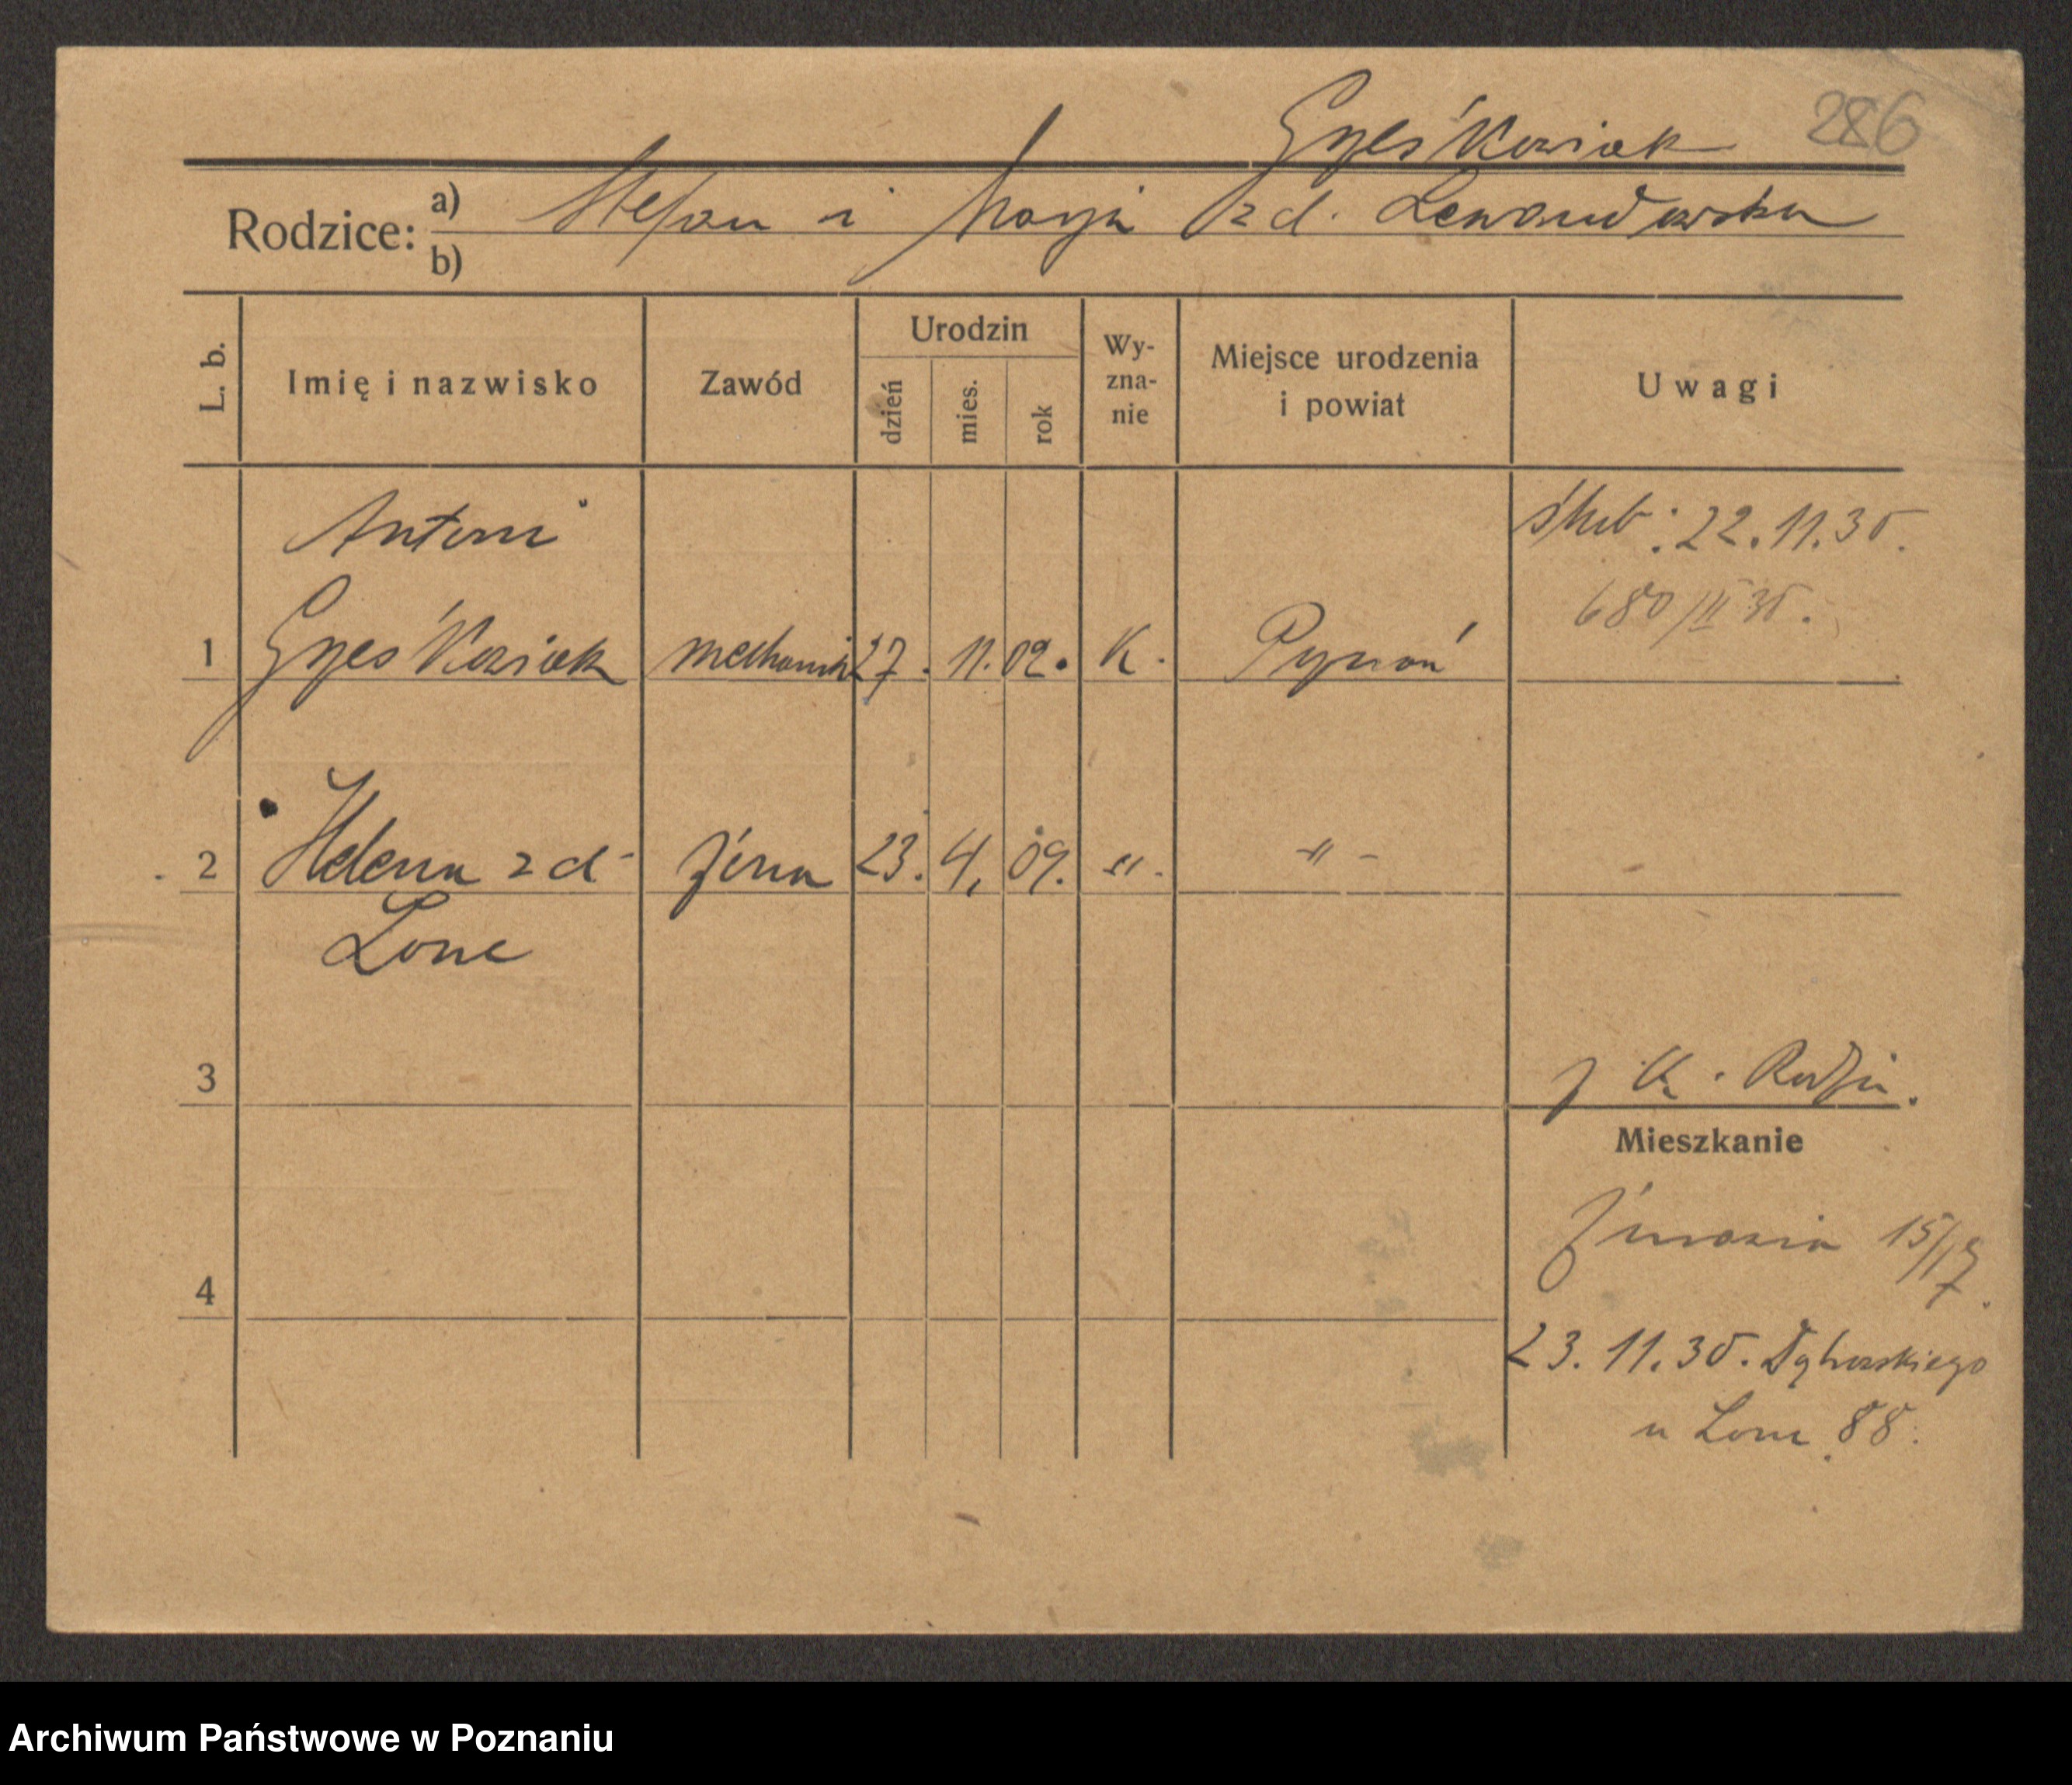 Grześkowiak 286
Rodzice: a) Stefan i Marja z d. Lewandowska
b)
L. b. Imię i nazwisko Zawód Urodzin dzień mies. rok Wy-zna-nie Miejsce urodzenia i powiat Uwagi
Antoni ślub: 22.11.30.
680/III 30.
1 Grześkowiak mechanik 27. 11. 02. K. Poznań
2 Helena z d. żona 23. 4. 09. -"- -"-
Lonc
3
Mieszkanie
15/17
4
23.11.30. Dąbrowskiego
u Lonc 88.
Archiwum Państwowe w Poznaniu